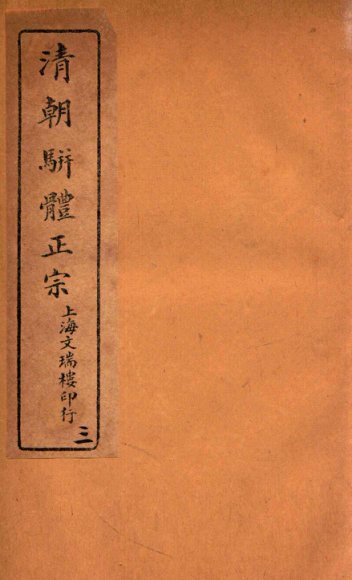 清朝駢體正宗
上海文瑞樓印行
三